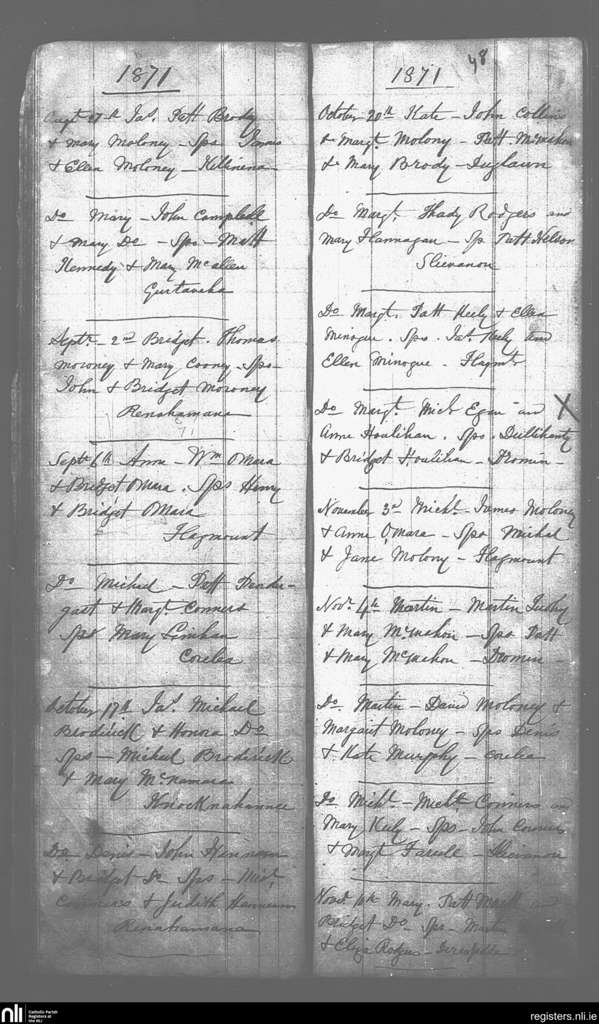 1871
Augt 27th Jas. Patt Brody
& Mary Moloney - Sps James
& Ellen Moloney - Killinena
Do Mary - John Campbell
& Mary Do - Sps - Matt
Kennedy & Mary McAllen
Gurtaveha
Septr 2nd Bridget. Thomas
Moroney & Mary Cooney - Sps -
John & Bridget Moroney
Renahamana
71
Septr 6th Anne - Wm OMara
& Bridget OMara. Sps Henry
& Bridget OMara
Flagmount
Do Michael - Patt Prender-
gast & Margt Conners
Sps Mary Linhan
Corelea
October 17th Jas. Michael
Brodrick & Honora Do
Sps - Michael Brodrick
& Mary McNamara
Knocknahannee
Do Denis - John Hennion
& Bridget Do Sps - Mick
Conners & Judith Hennion
Renahamana
48
1871
October 20th Kate - John Collins
& Margt Molony - Patt McMahon
& Mary Brody - Inglawn
Do Margt. Thady Rodgers and
Mary Flannagan - Sp Patt Nelson
Slievanon
Do Margt. Patt Keely & Ellen
Minogue. Sps. Jas. Keely and
Ellen Minogue - Flagmt
Do Margt. Mick Egan and X
Anne Houlihan. Sps. Dullihanty
& Bridget Houlihan - Dromin -
November 3rd Michl. James Molony
& Anne O'Mara - Sps Michal
& Jane Molony - Flagmount
Novr 4th Martin - Martin Tuohy
& Mary McMahon - Sps Patt
& Mary McMahon - Dromin -
Do. Martin - David Moloney &
Margaret Moloney - Sps Denis
& Kate Murphy - Corelea
Do Michl - Michl Conners and
Mary Keely - Sps - John Conners
& Margt - Slievanon
Novr Mary. Patt and
Bridget Do - Sps -
& Eliza Rodgers -
nli
Catholic Parish
Registers at
the NLI
registers.nli.ie